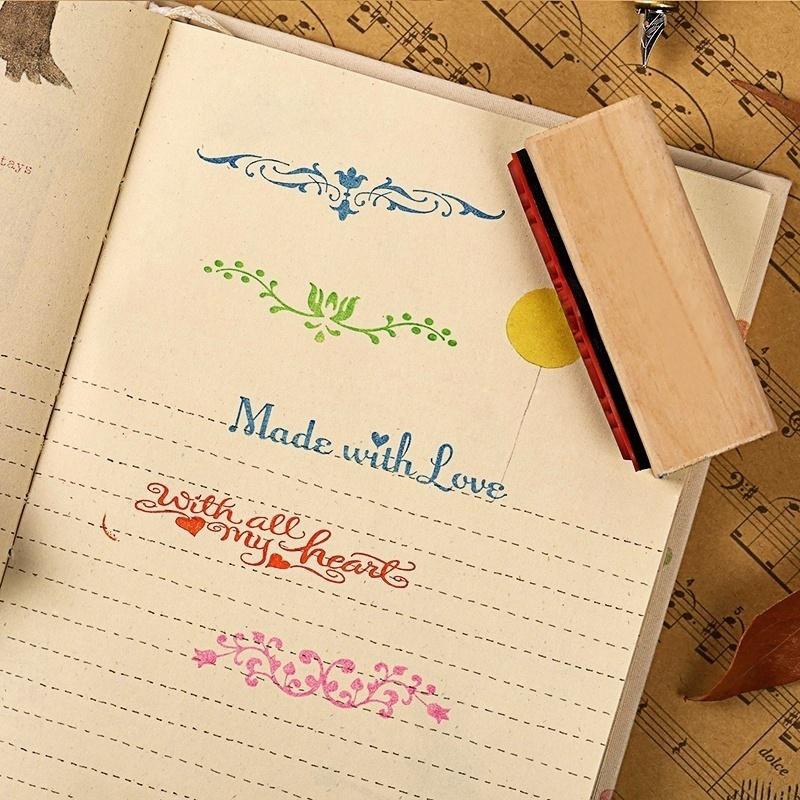 tays
Made with Love
With all
my heart
dolce